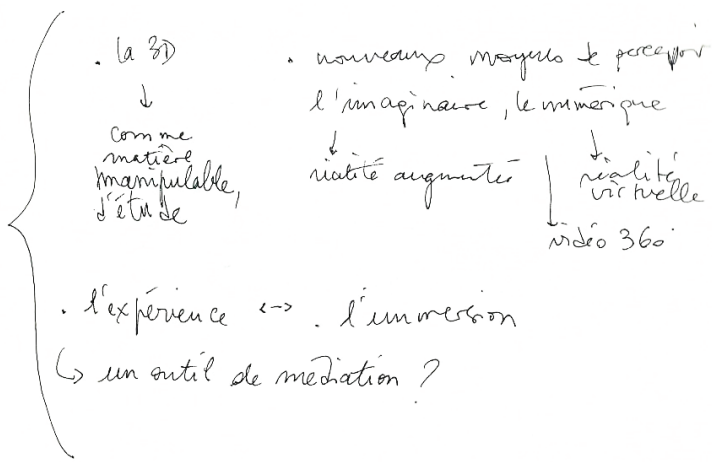 . la 3D
↓
comme
matière
manipulable,
d'étude
. nouveaux moyens de percevoir
l'imaginaire, le numérique
↓ ↓ ↓
réalité augmentée
réalité
virtuelle
vidéo 360°
. l'expérience <-> . l'immersion
↳ un outil de médiation ?